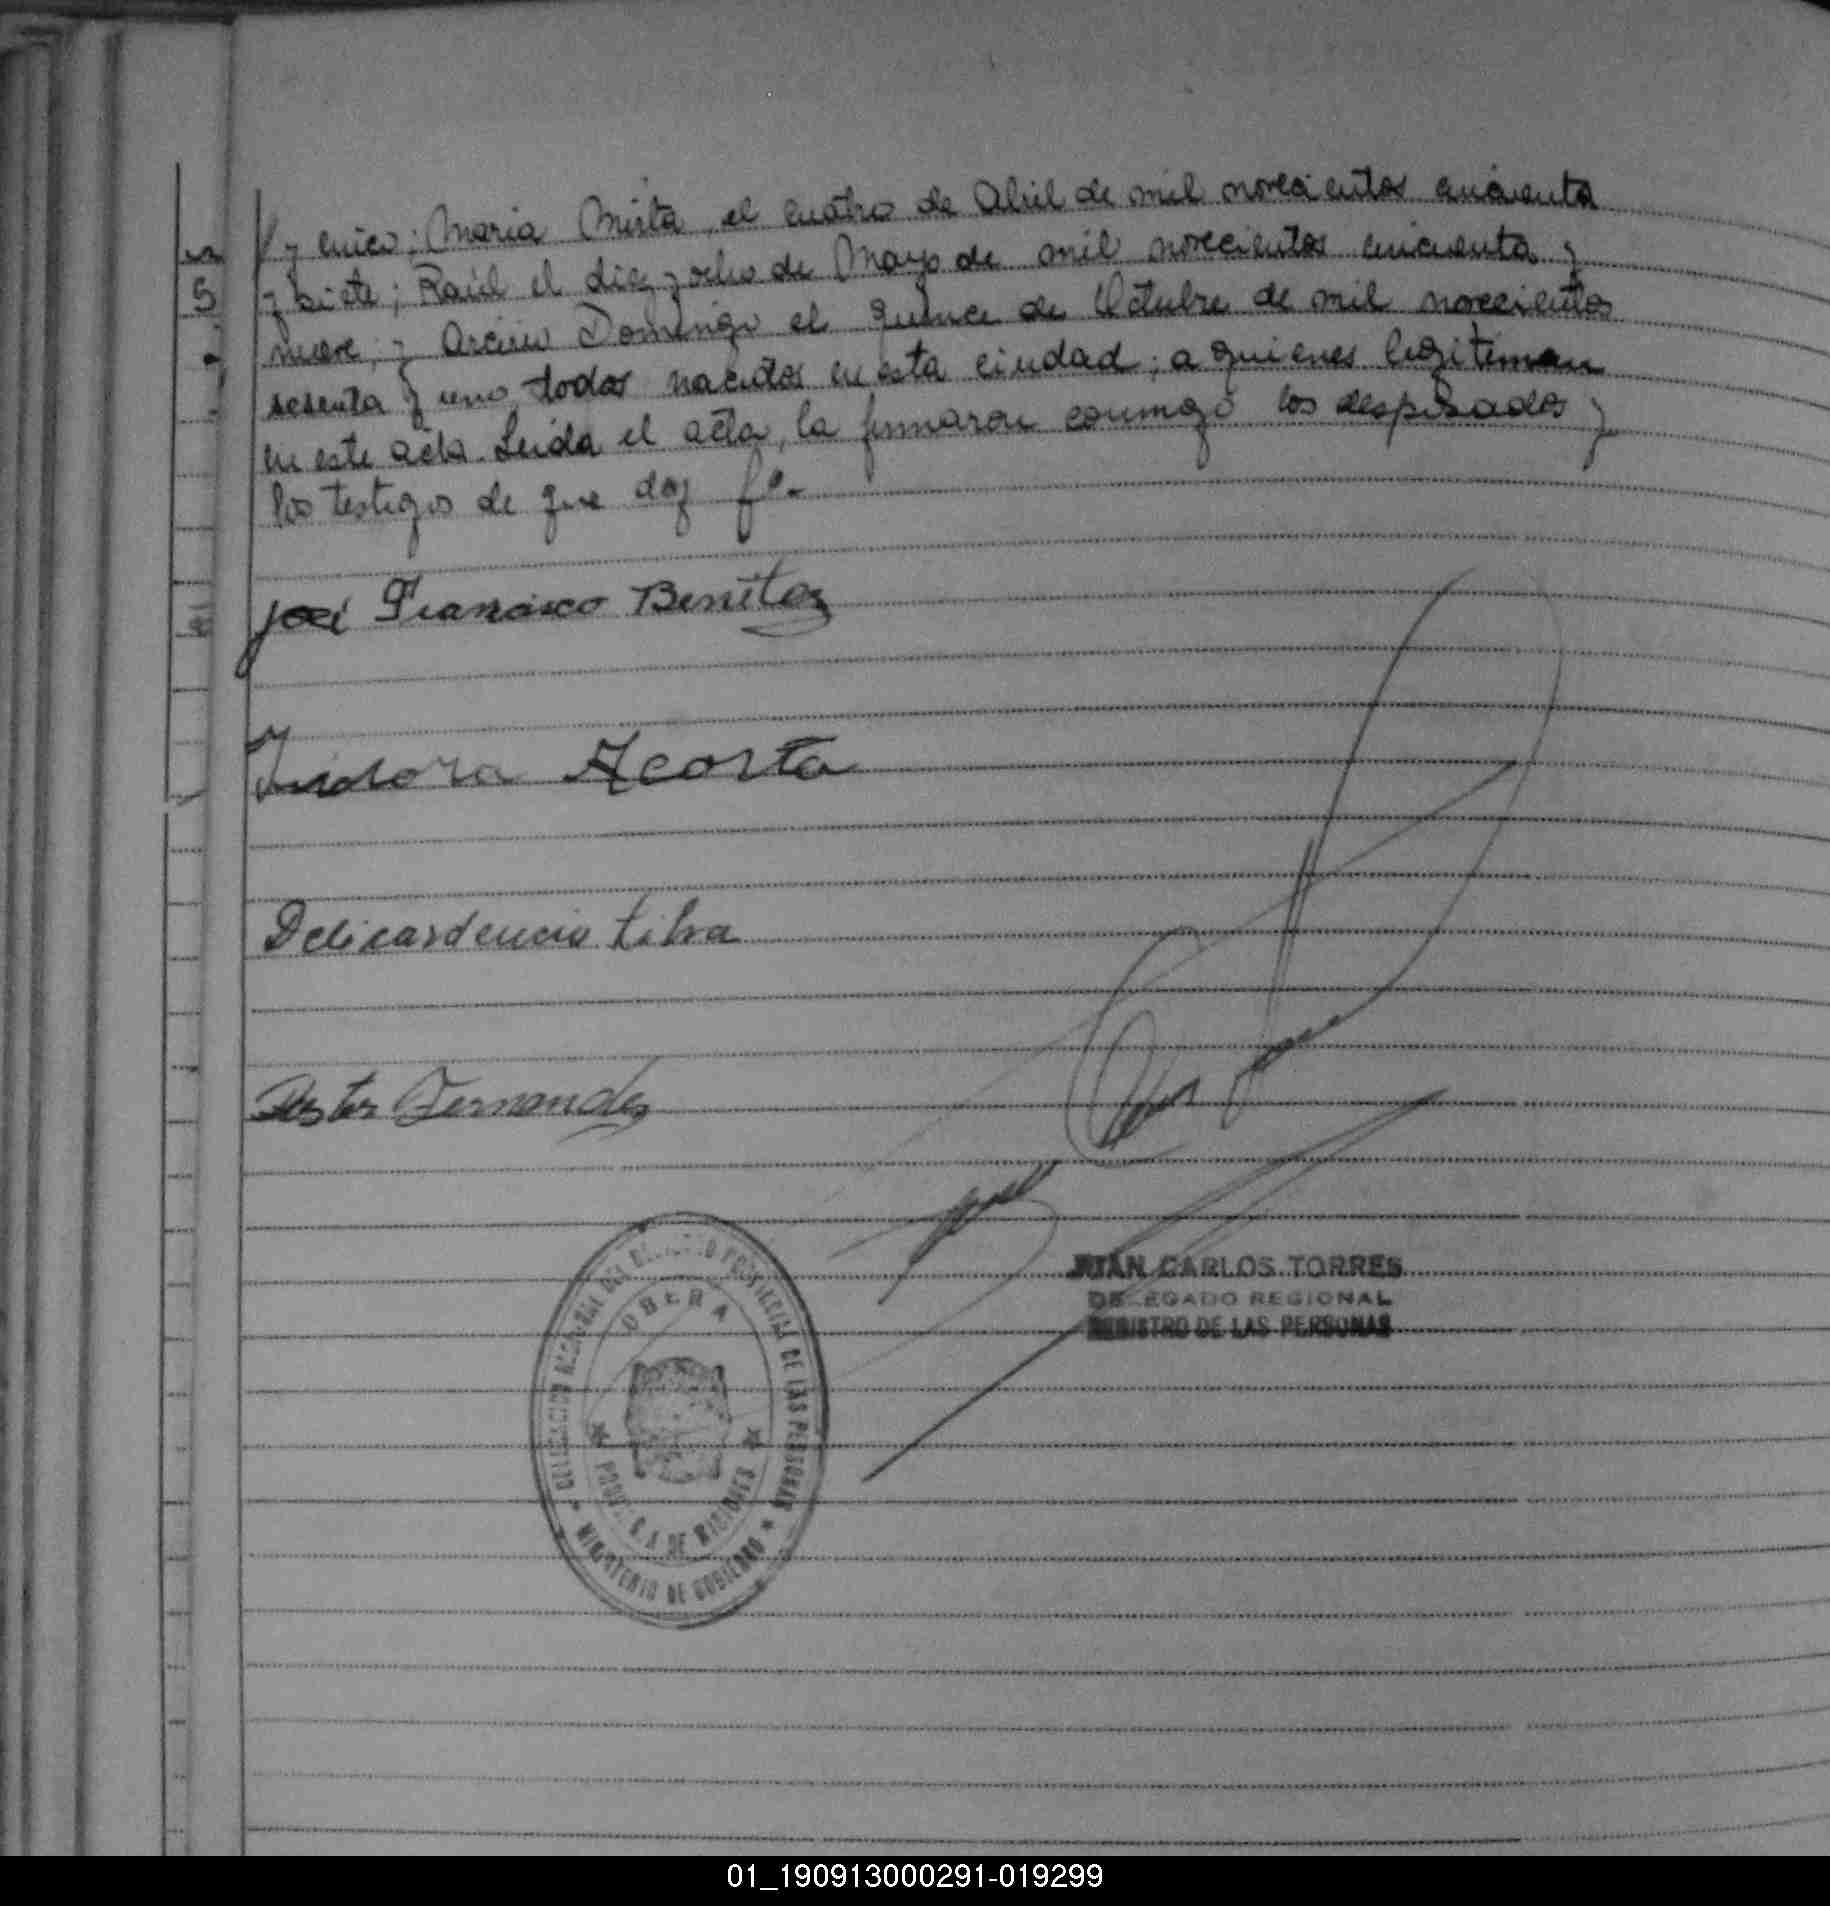 y cinco; Maria Mirta, el cuatro de Abril de mil novecientos cincuenta
y siete; Raúl el diez y ocho de Mayo de mil novecientos cincuenta y
nueve; y Domingo el quince de Octubre de mil novecientos
sesenta y uno todos nacidos en esta ciudad; a quienes legitiman
en este acta. Leida el acta, la firmaron conmigo los desposados y
los testigos de que doy fe.-
5
José Francisco Benitez
Isidora Acosta
Silva
Fernandez
JUAN CARLOS TORRES
DELEGADO REGIONAL
REGISTRO DE LAS PERSONAS
DELEGACION REGIONAL DEL REGISTRO PROVINCIAL DE LAS PERSONAS
OBERA
DE MISIONES
MINISTERIO DE GOBIERNO
01_190913000291-019299